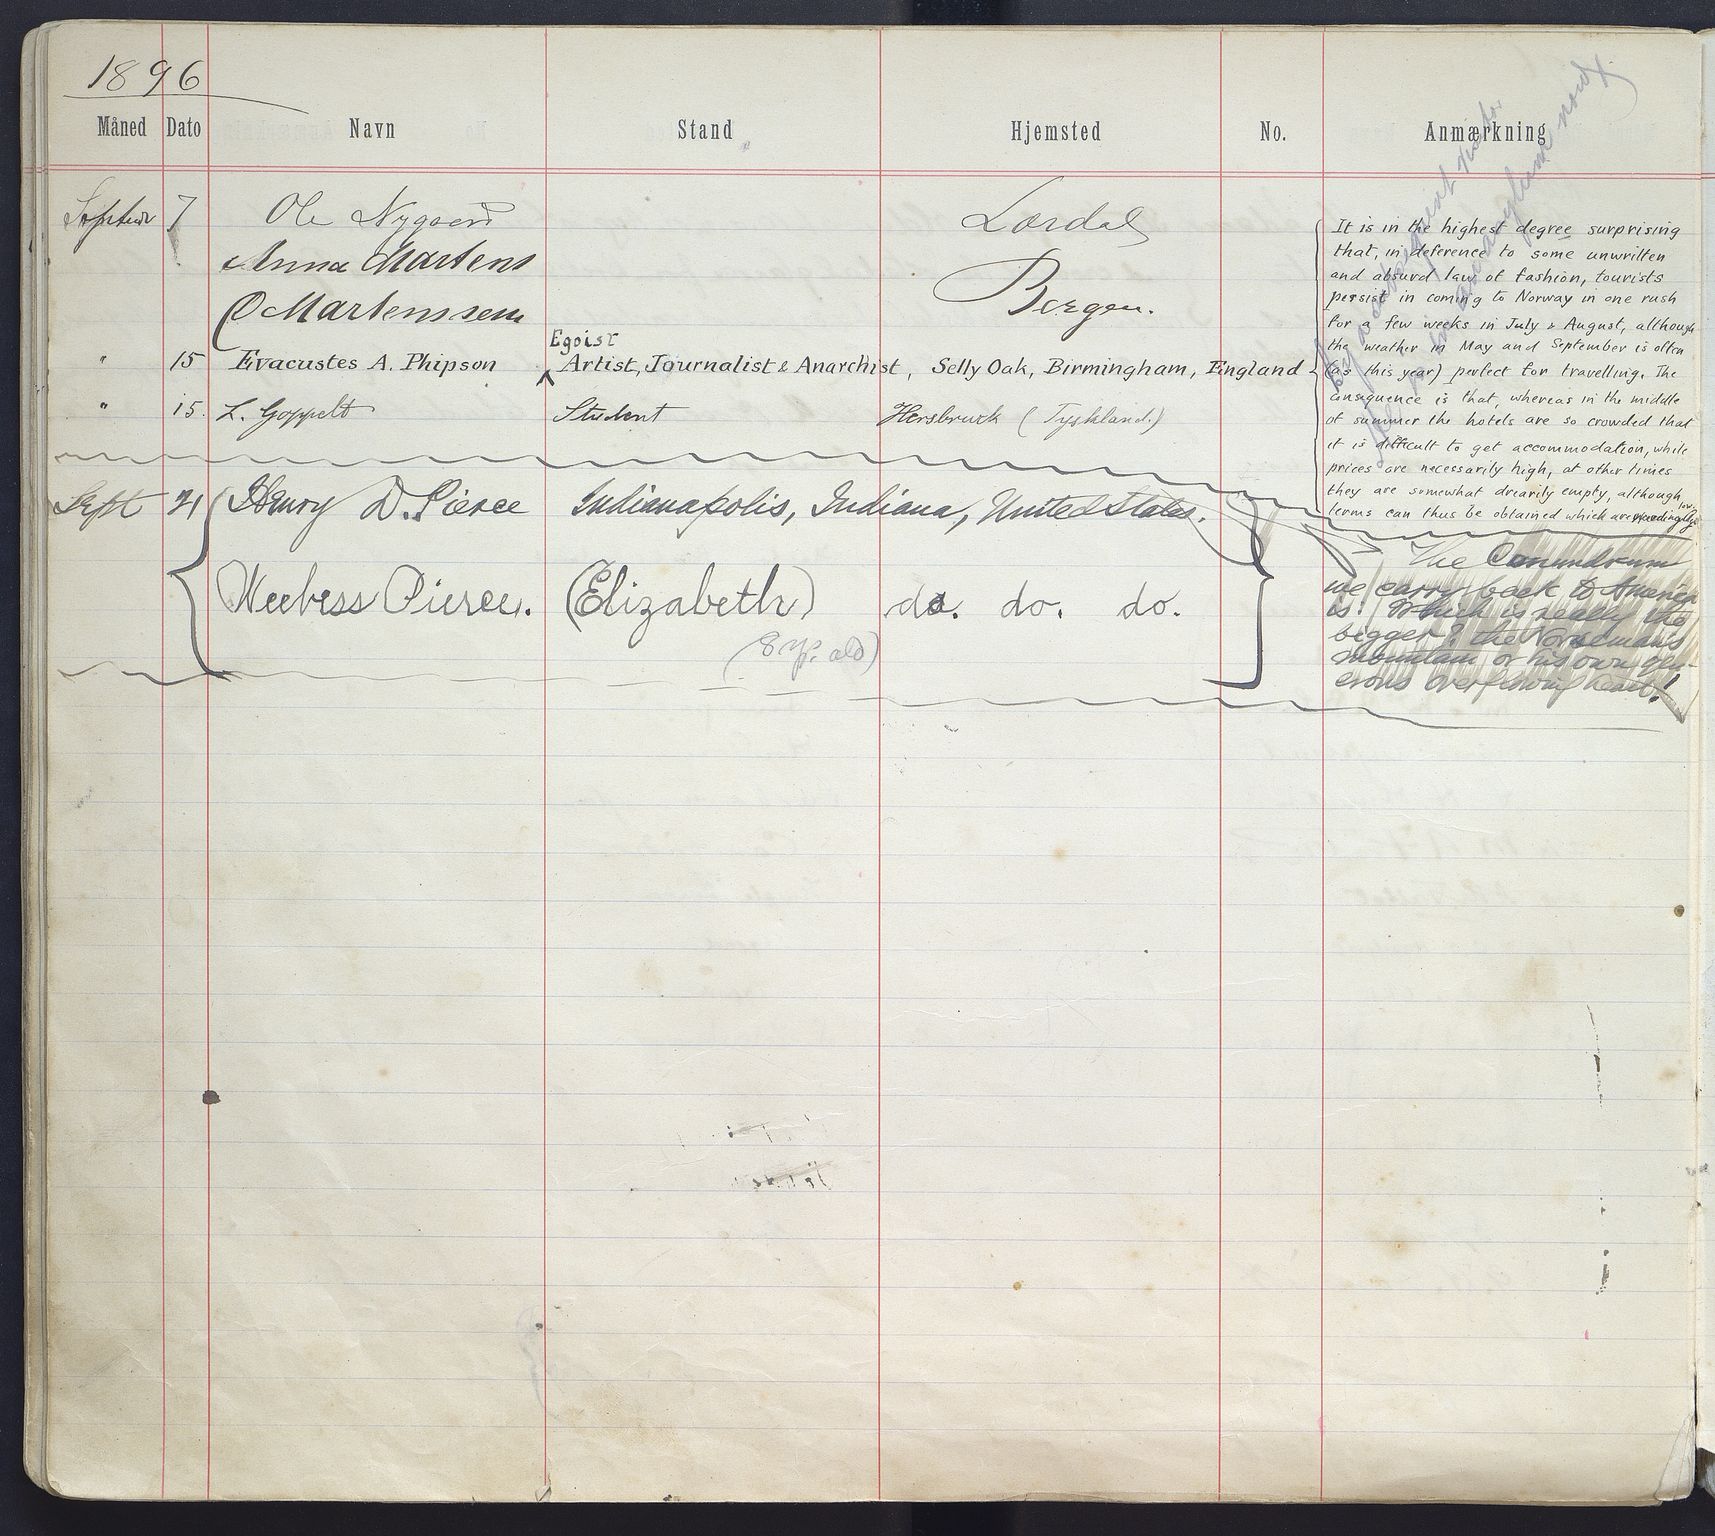 1896
Måned Dato Navn Stand Hjemsted No. Anmærkning
7 Ole Nygaard Lærdal
Anna Martens
O Martenssen Bergen.
Egoist
" 15 Evacustes A. Phipson Artist, Journalist & Anarchist, Selly Oak, Birmingham, England
" 15. L. Goppelt Student Hersbruck (Tyskland.)
It is in the highest degree surprising
that, in deference to some unwritten
and absurd law of fashion, tourists
persist in coming to Norway in one rush
for a few weeks in July & August, although
the weather in May and September is often
(as this year) perfect for travelling. The
consequence is that, whereas in the middle
of summer the hotels are so crowded that
it is difficult to get accommodation, while
prices are necessarily high, at other times
they are somewhat drearily empty, although
terms can thus be obtained which are
Sept 21 Henry D. Pierce Indianapolis, Indiana, United States.
Weebess Pierce. (Elizabeth) do. do. do.
(8 yr. old)
The Conundrum
we carry back to America
is! Which is really the
bigger? the Norseman's
mountain or his own gen-
erous overflowing heart!